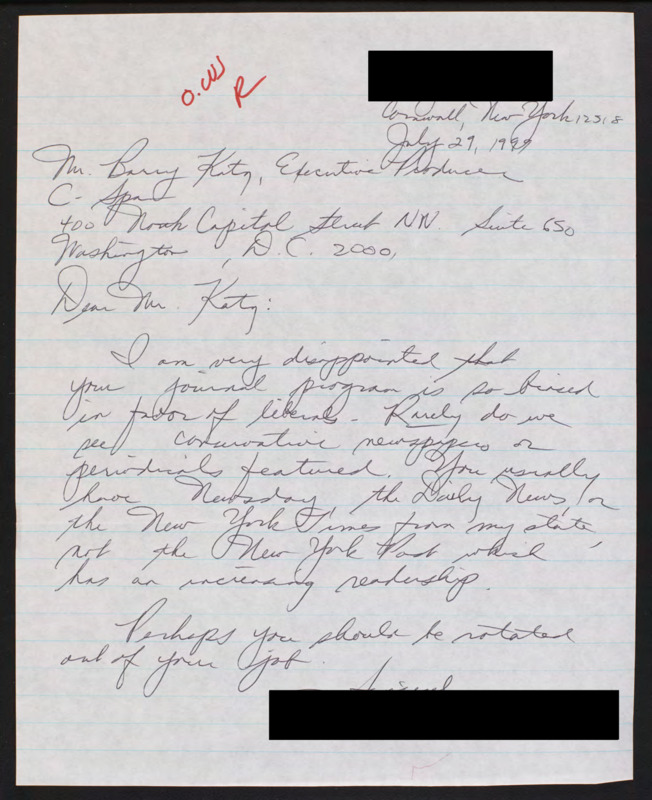 O.W
R
Cornwall, New York 12518
July 29, 1999
Mr. Barry Katz, Executive Producer
C-Span
400 North Capitol Street NW. Suite 650
Washington, D.C. 20001
Dear Mr. Katz:
I am very disappointed that
your journal program is so biased
in favor of liberals. Rarely do we
see conservative newspapers or
periodicals featured. You usually
have Newsday, the Daily News, or
the New York Times from my state,
not the New York Post which
has an increasing readership.
Perhaps you should be rotated
out of your job.